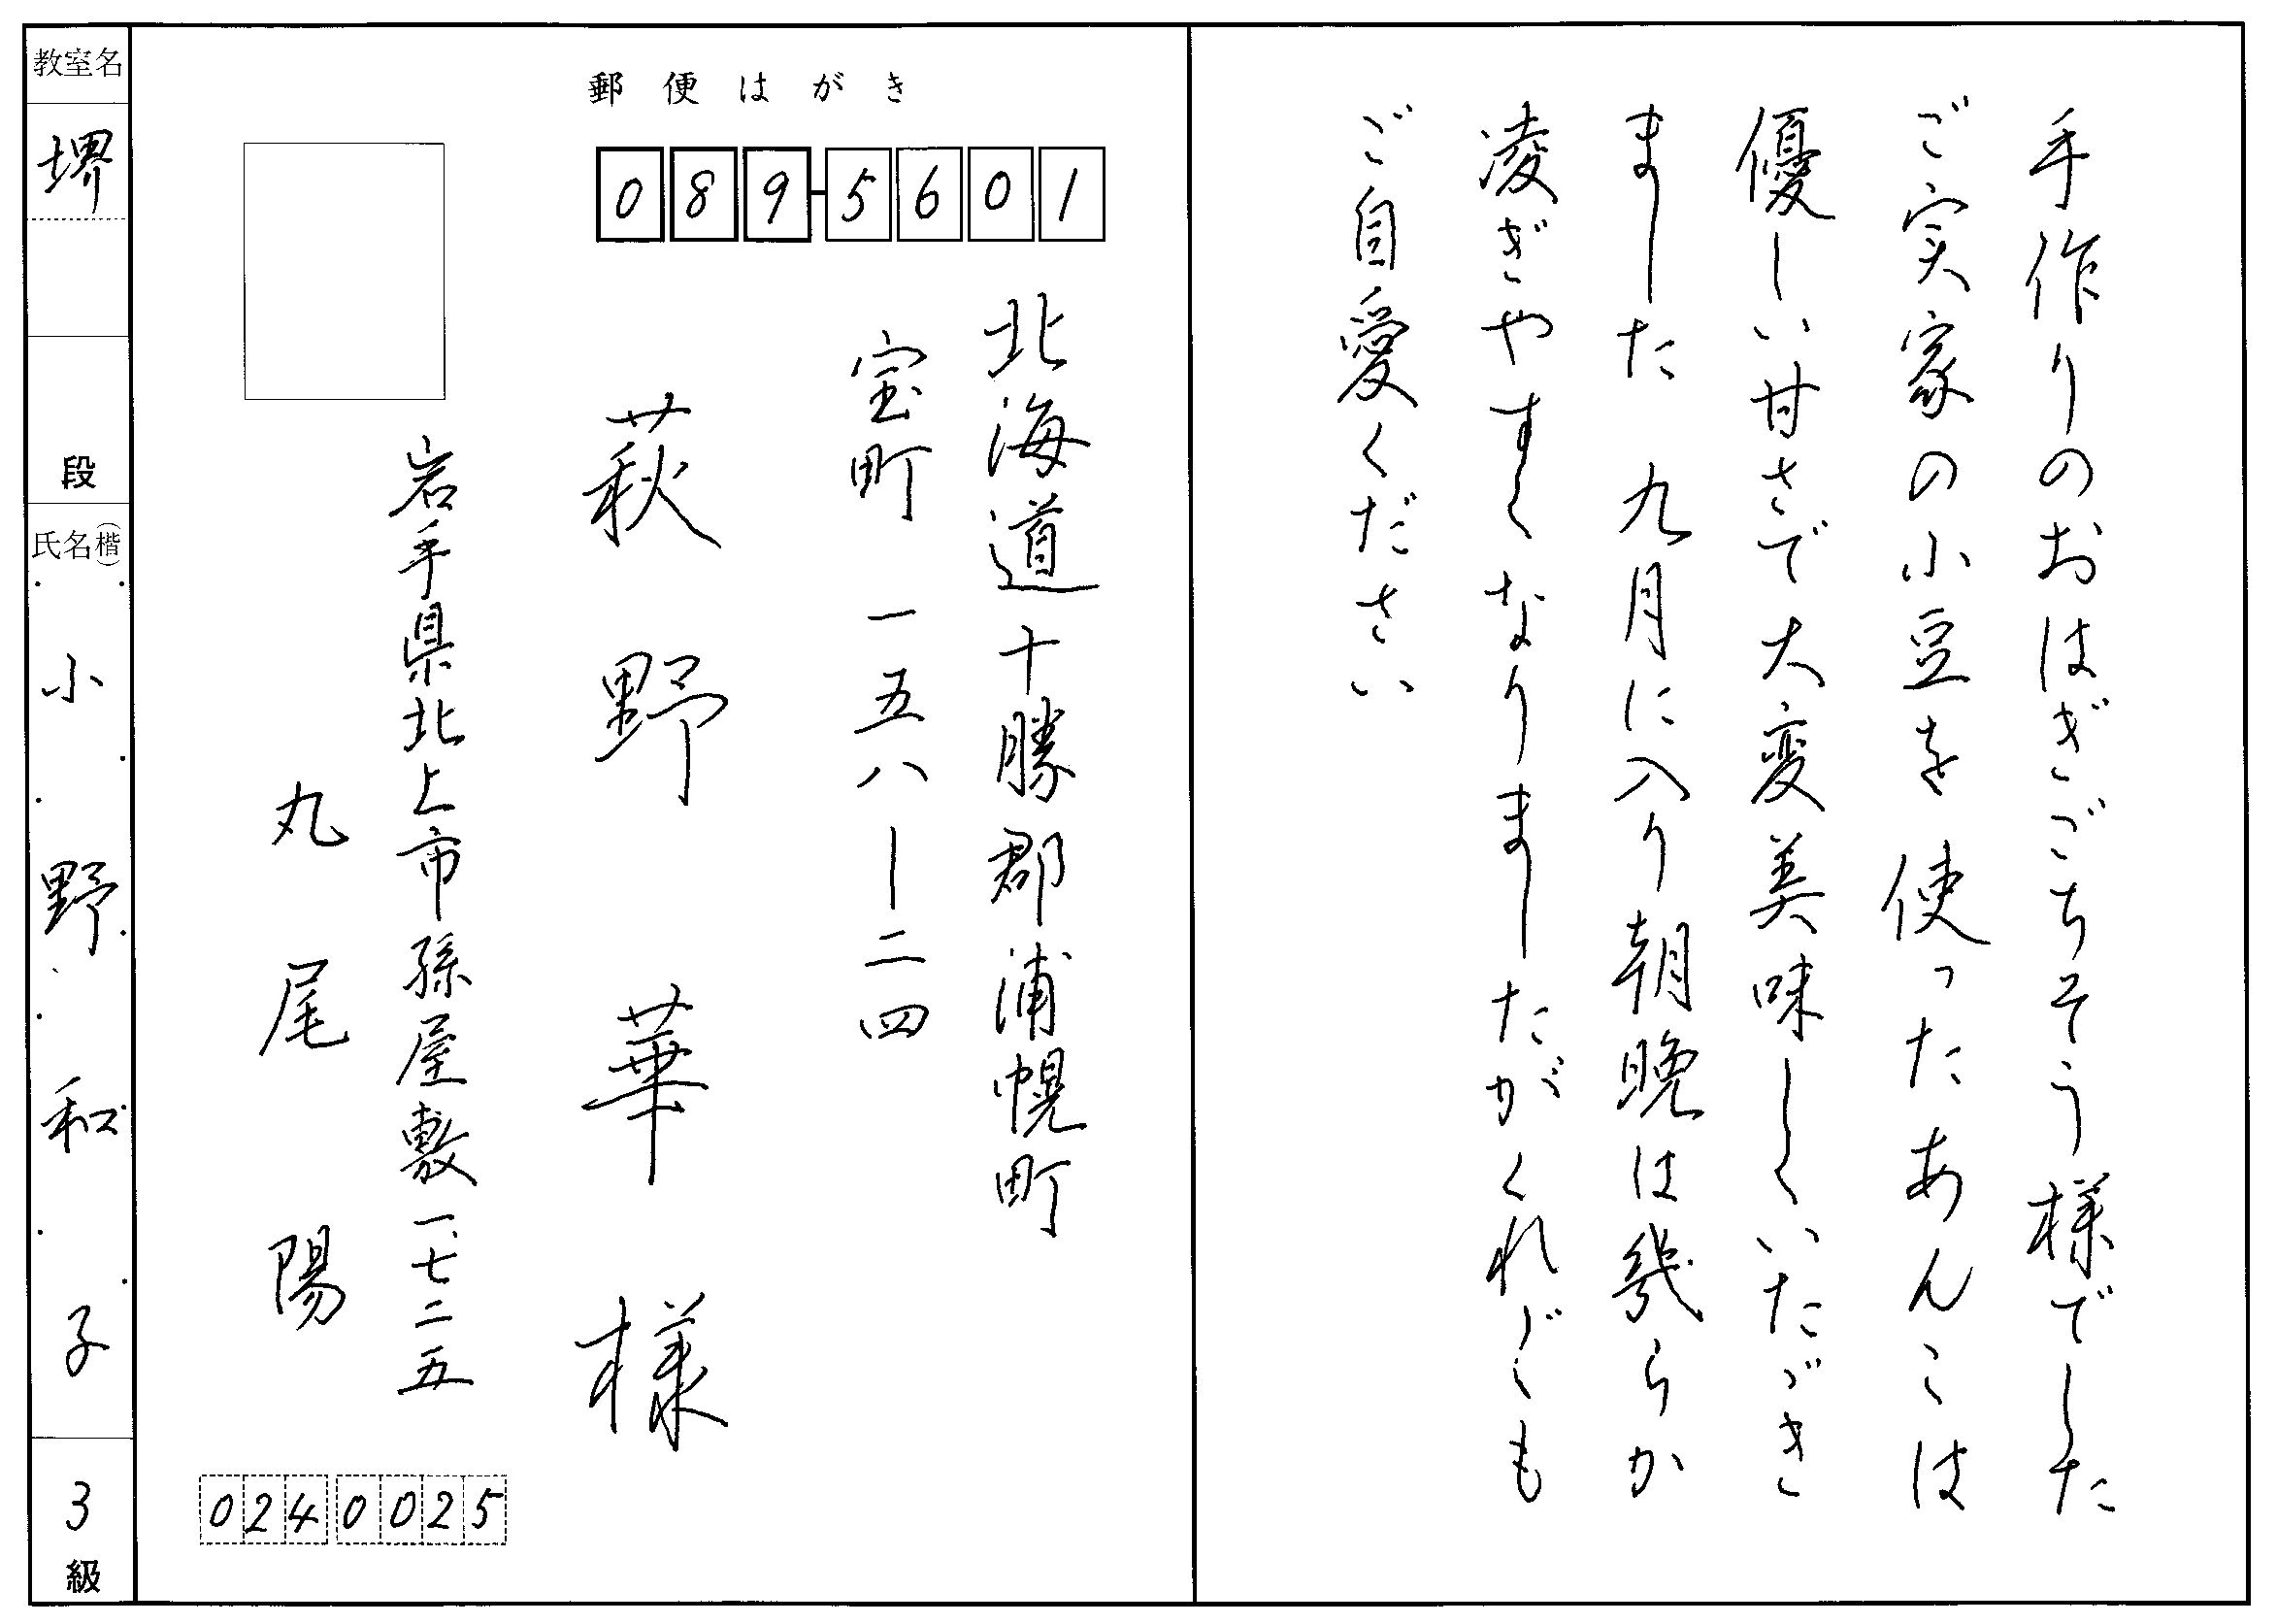 手作りのおはぎごちそう様でした
ご実家の小豆を使ったあんこは
優しい甘さで大変美味しくいただき
ました 九月に入り朝晩は幾らか
凌ぎやすくなりましたがくれぐれも
ご自愛ください
郵便はがき
089-5601
北海道十勝郡浦幌町
宝町 一五八ー二四
萩野 華 様
岩手県北上市孫屋敷一七二五
丸尾 陽
0240025
教室名
堺
段
氏名(楷)
小野和子
3
級